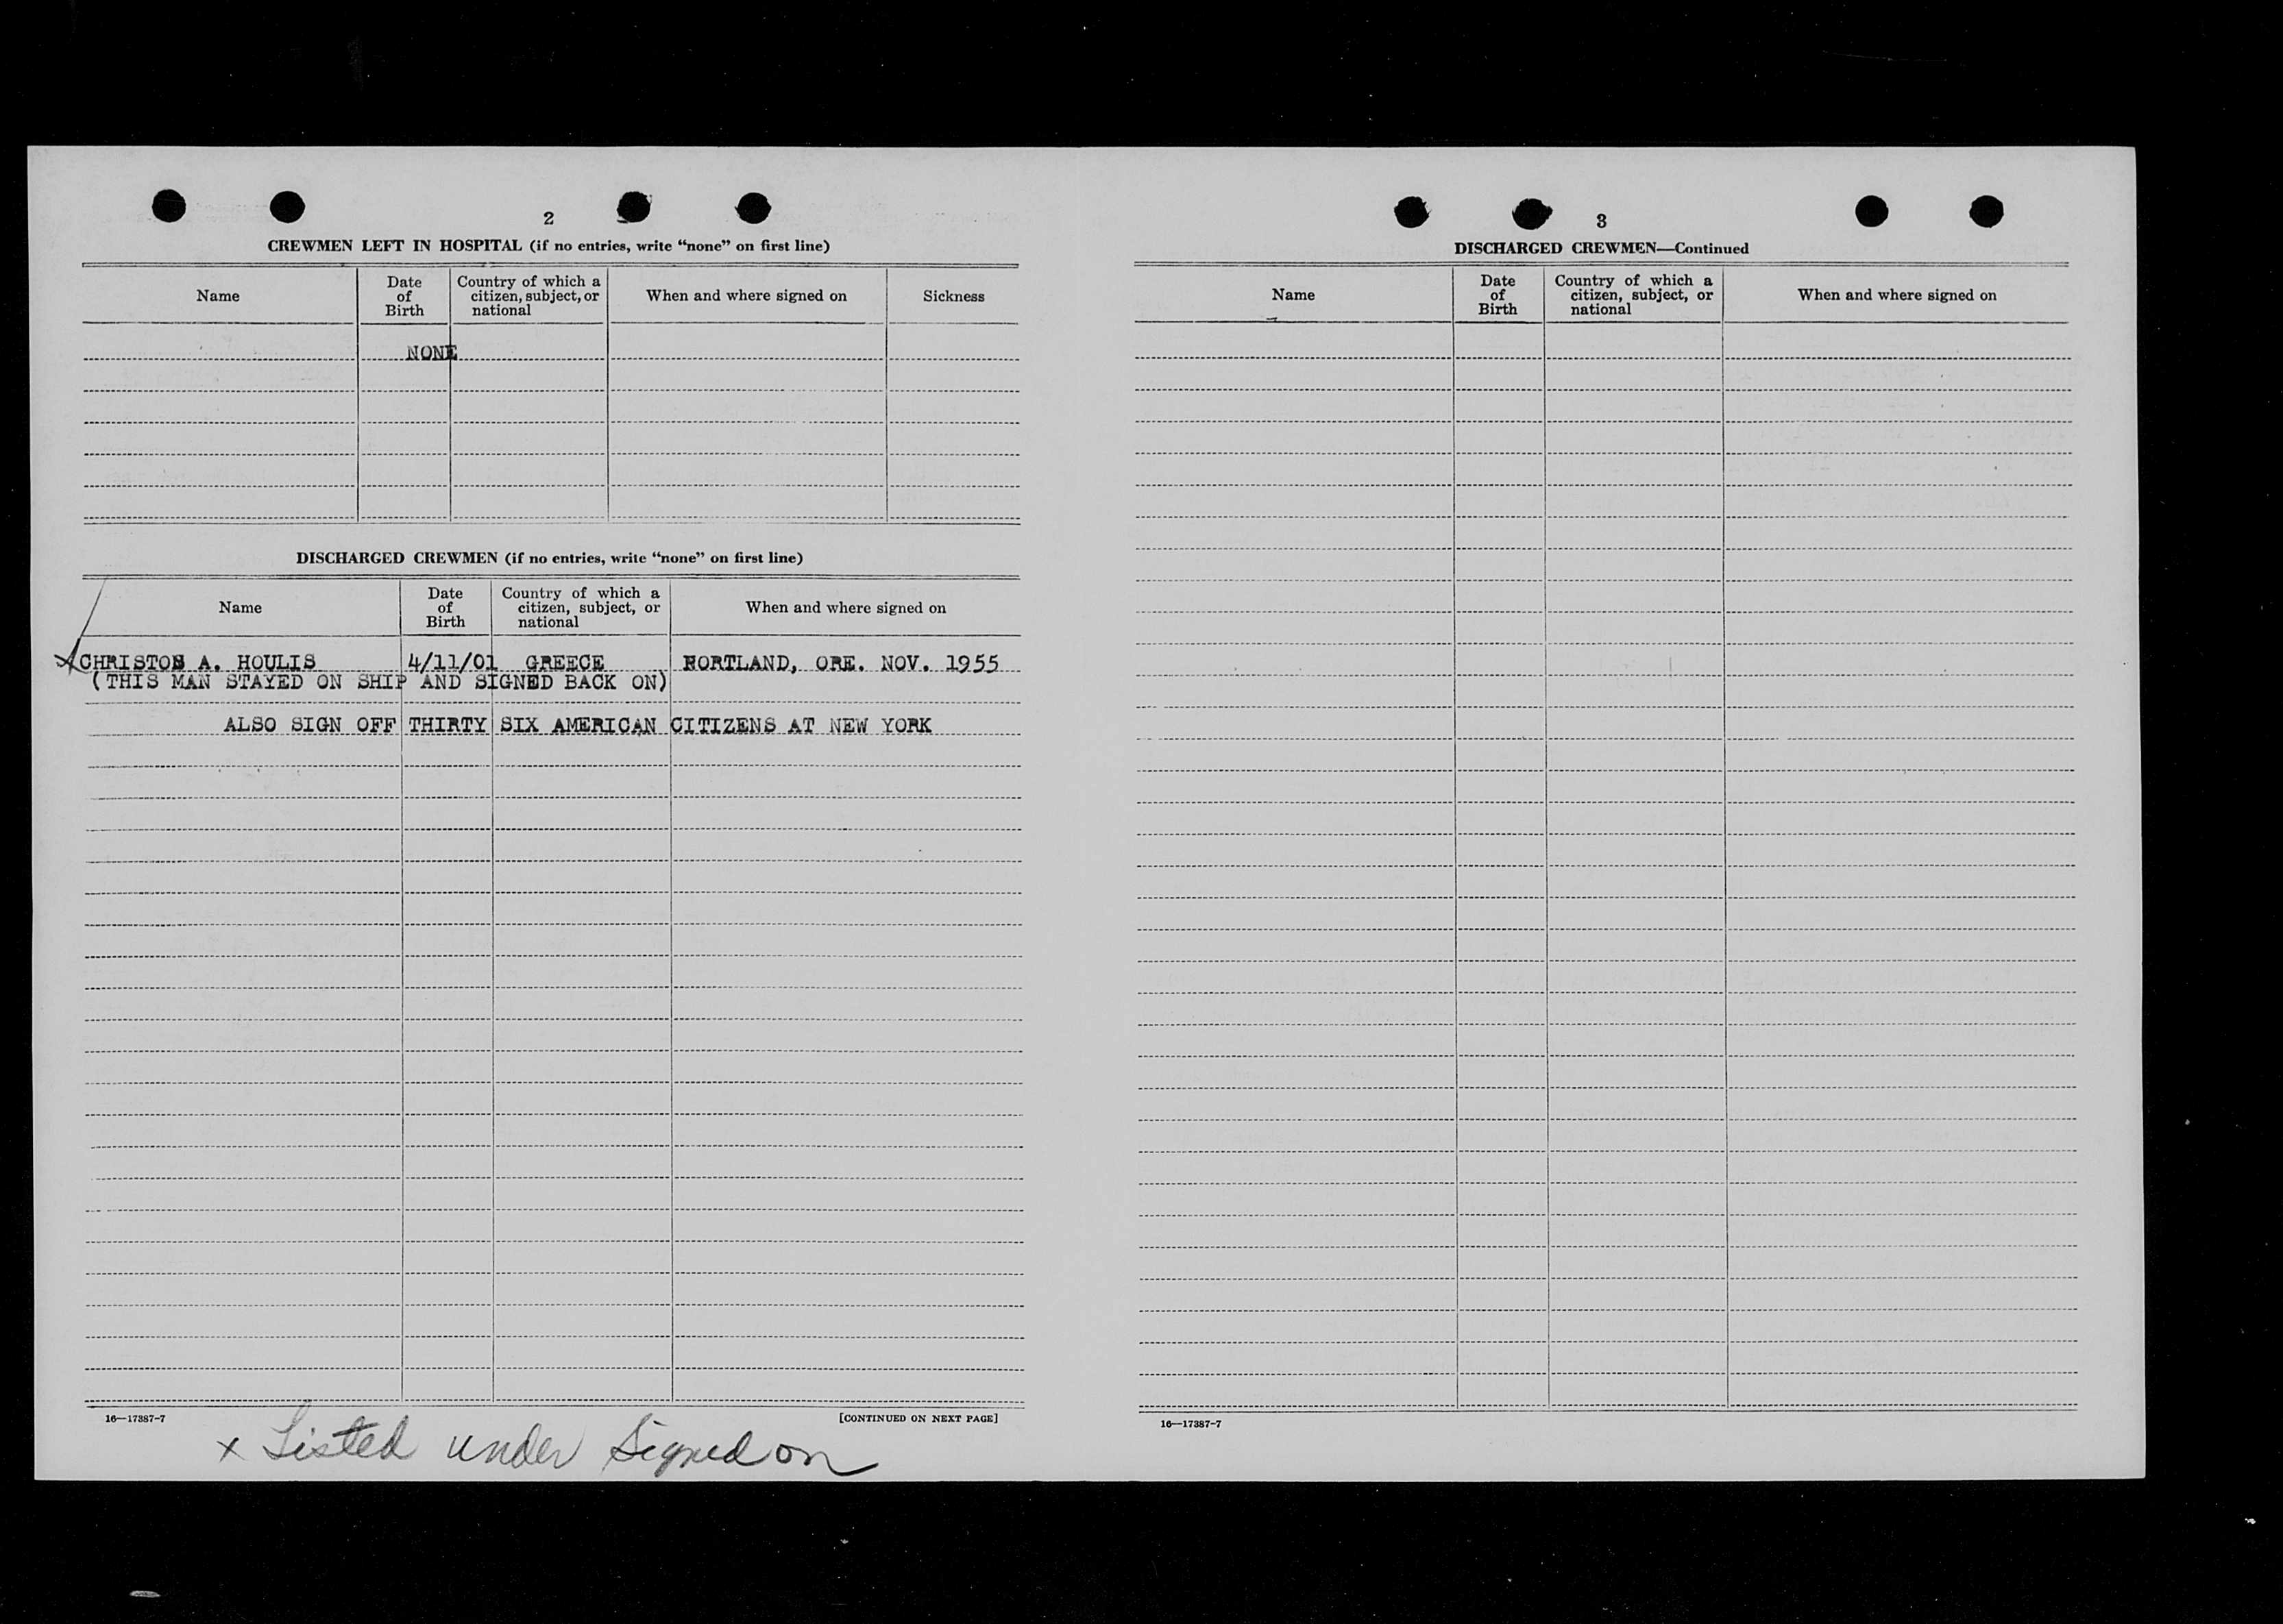 2
CREWMEN LEFT IN HOSPITAL (if no entries, write “none” on first line)
Name
Date of Birth
Country of which a citizen, subject, or national
When and where signed on
Sickness
NONE
DISCHARGED CREWMEN (if no entries, write “none” on first line)
Name
Date of Birth
Country of which a citizen, subject, or national
When and where signed on
x CHRISTOS A. HOULIS 4/11/01 GREECE PORTLAND, ORE. NOV. 1955
(THIS MAN STAYED ON SHIP AND SIGNED BACK ON)
ALSO SIGN OFF THIRTY SIX AMERICAN CITIZENS AT NEW YORK
16—17387-7 [CONTINUED ON NEXT PAGE]
x Listed under Signed on
3
DISCHARGED CREWMEN—Continued
Name
Date of Birth
Country of which a citizen, subject, or national
When and where signed on
16—17387-7